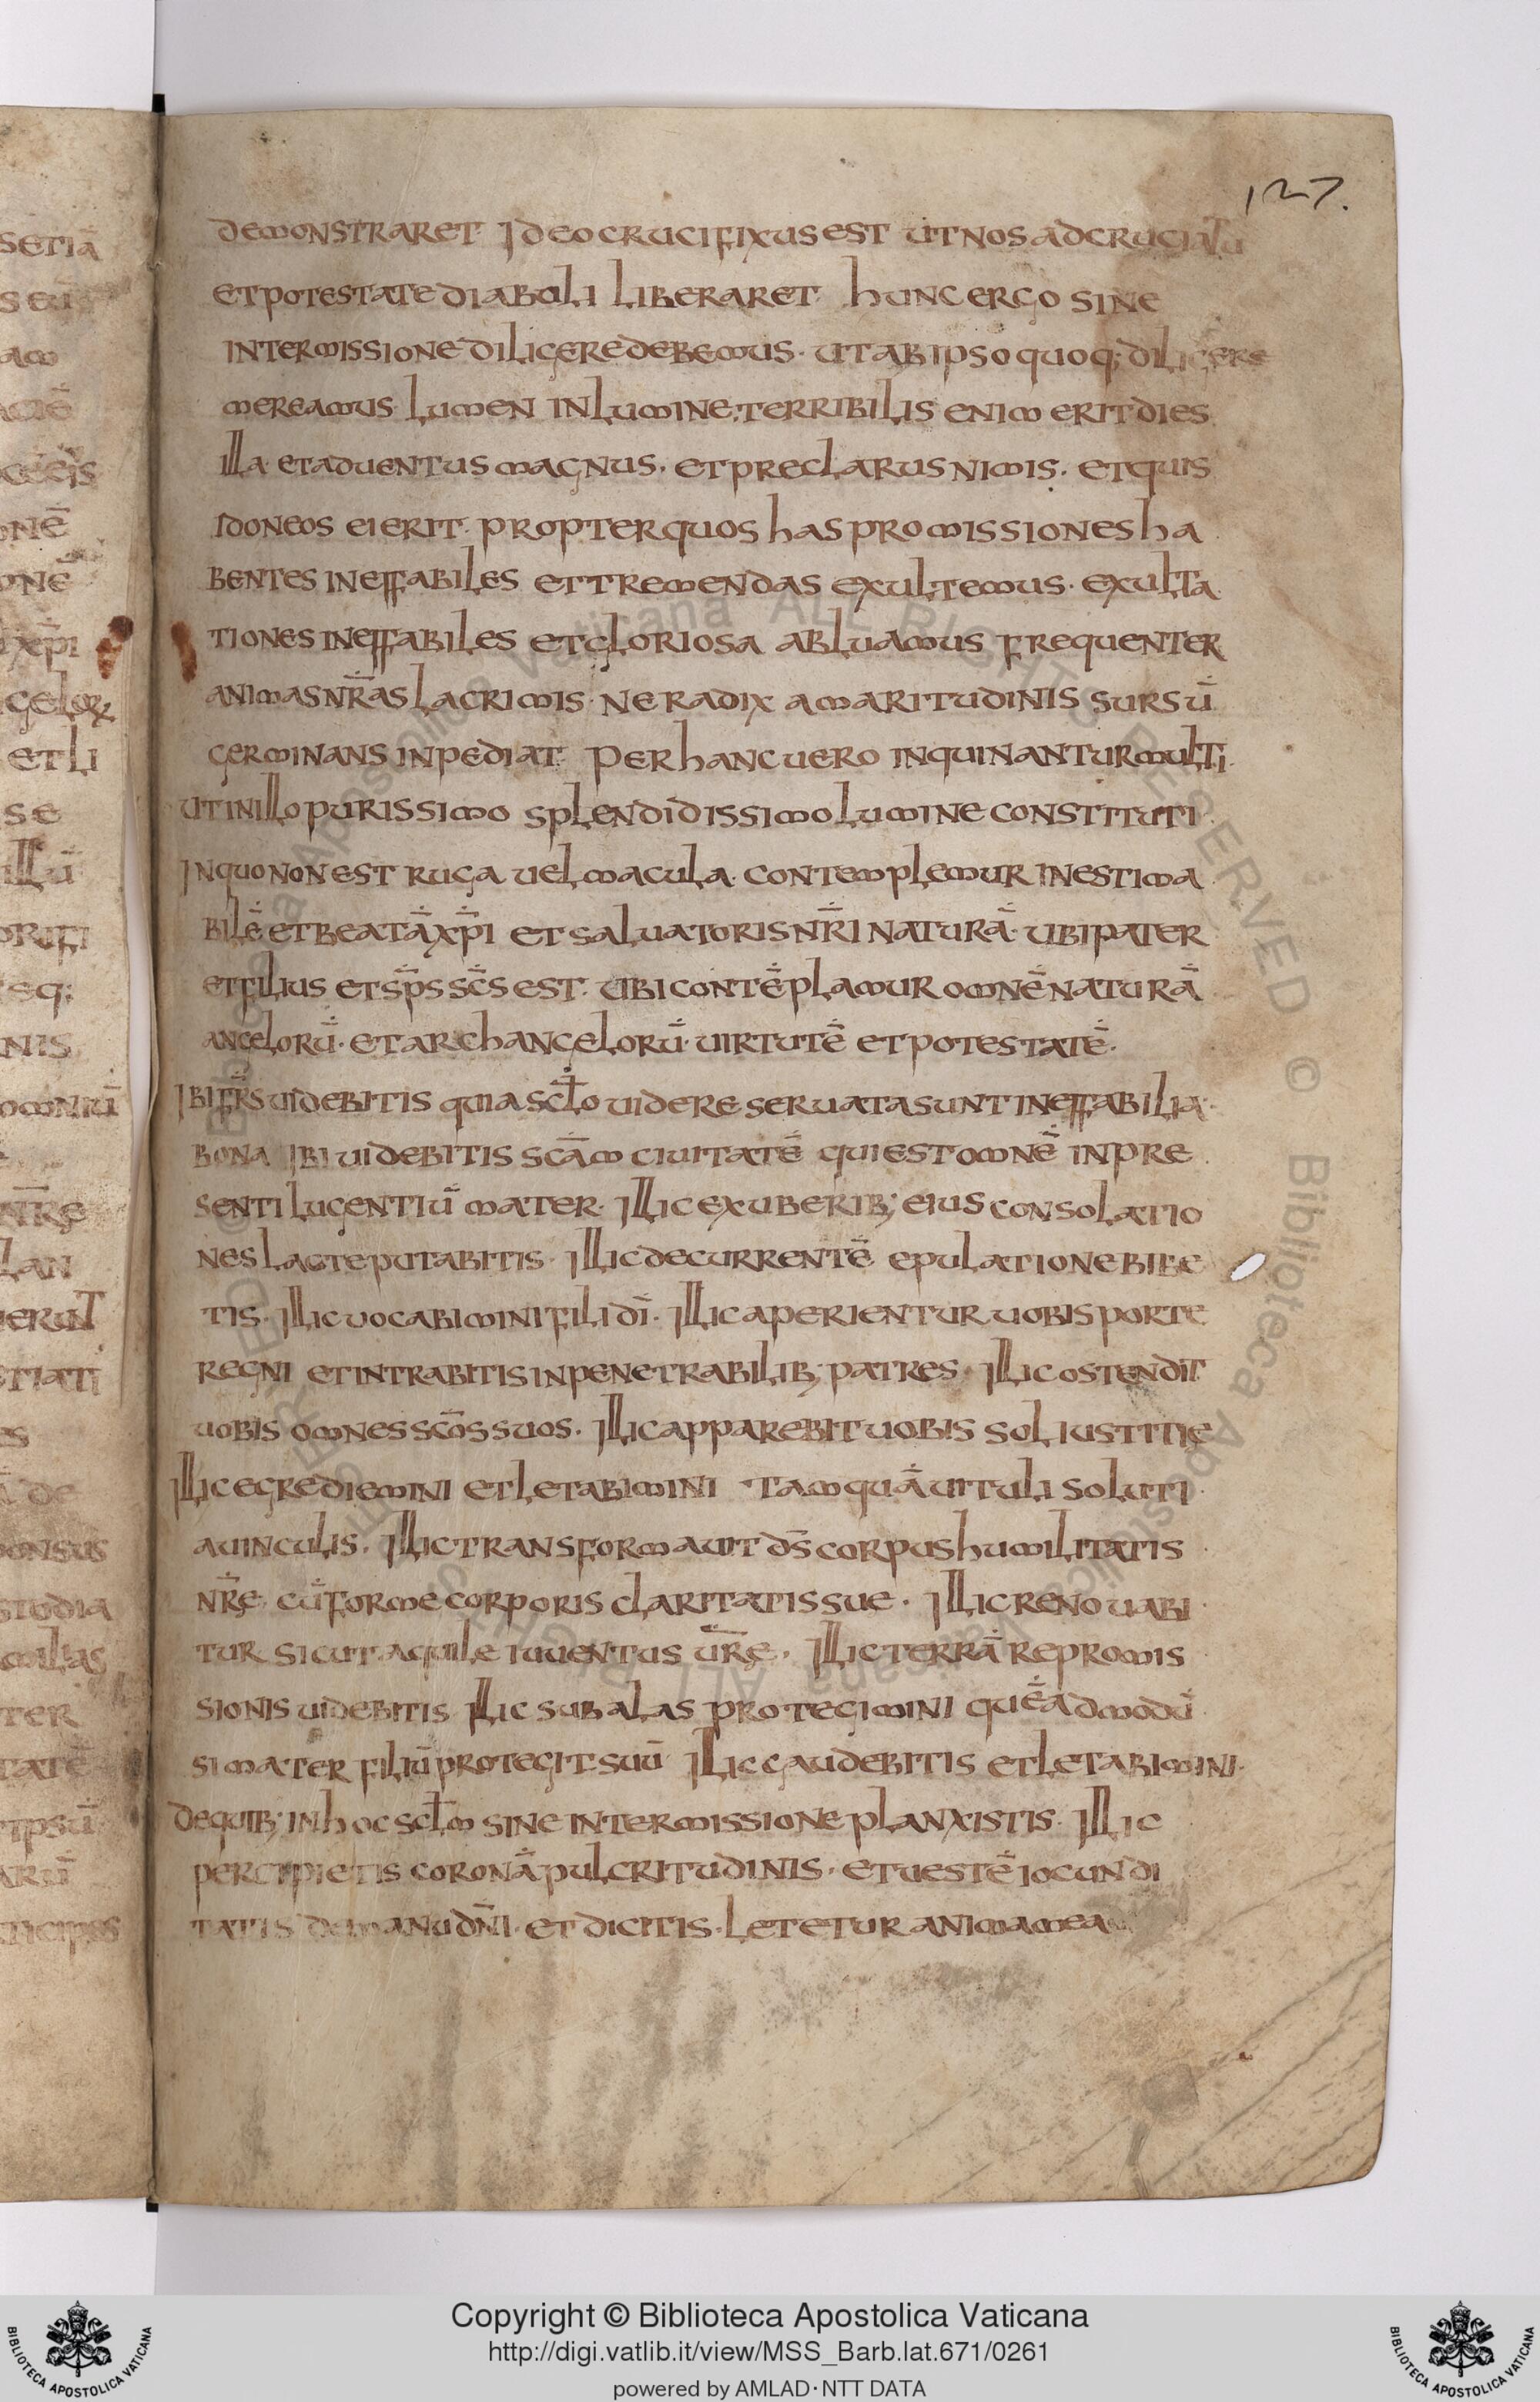 127.
demonstraret Ideo crucifixus est ut nos ad cruciatu
et potestate diaboli liberaret hunc ergo sine
intermissione diligere debemus · ut ab ipso quoq; diligere
mereamus lumen in lumine; terribilis enim erit dies
illa et aduentus magnus · et preclarus nimis · et quis
idoneos ei erit · propter quos has promissiones ha
bentes ineffabiles et tremendas exultemus · exulta
tiones ineffabiles et gloriosa abluamus frequenter
animas nr̄as lacrimis · ne radix amaritudinis sursū
germinans inpediat per hanc uero inquinantur multi ·
ut in illo purissimo splendidissimo lumine constituti
In quo non est ruga uel macula · contemplemur inestima
bilē et beatā xp̄i et saluatoris nr̄i naturā · ubi pater
et filius et sp̄s sc̄s est · ubi contēplamur omnē naturā
angelorū · et archangelorū · uirtutē et potestatē ·
Ibi fr̄s uidebitis quia sc̄lo uidere seruata sunt ineffabilia ·
bona Ibi uidebitis sc̄am ciuitatē qui est omnē in pre
senti lugentiū mater · Illic ex uberib; eius consolatio
nes lacte putabitis · Illic decurrentē epulatione bibe
tis · Illic uocabimini fili dī · Illic aperientur uobis porte
regni et intrabitis in penetrabilib; patres · Illic ostendit
uobis omnes sc̄os suos · Illic apparebit uobis sol iustitie
Illic egrediemini et letabimini tamquā uituli soluti
a uinculis · Illic transformauit dn̄s corpus humilitatis
nr̄ę cū forme corporis claritatis sue · Illic renouabi
tur sicut aquile iuuentus ur̄ę · Illic terrā repromis
sionis uidebitis Illic sub alas protegimini quēadmodū
si mater filiū protegit suū Illic gaudebitis et letabimini ·
De quib; in hoc sc̄lm sine intermissione planxistis · Illic
percipietis coronā pulcritudinis · et uestē iocundi
tatis de manu dn̄i · et dicitis · letetur anima mea
Copyright © Biblioteca Apostolica Vaticana
http://digi.vatlib.it/view/MSS_Barb.lat.671/0261
powered by AMLAD·NTT DATA